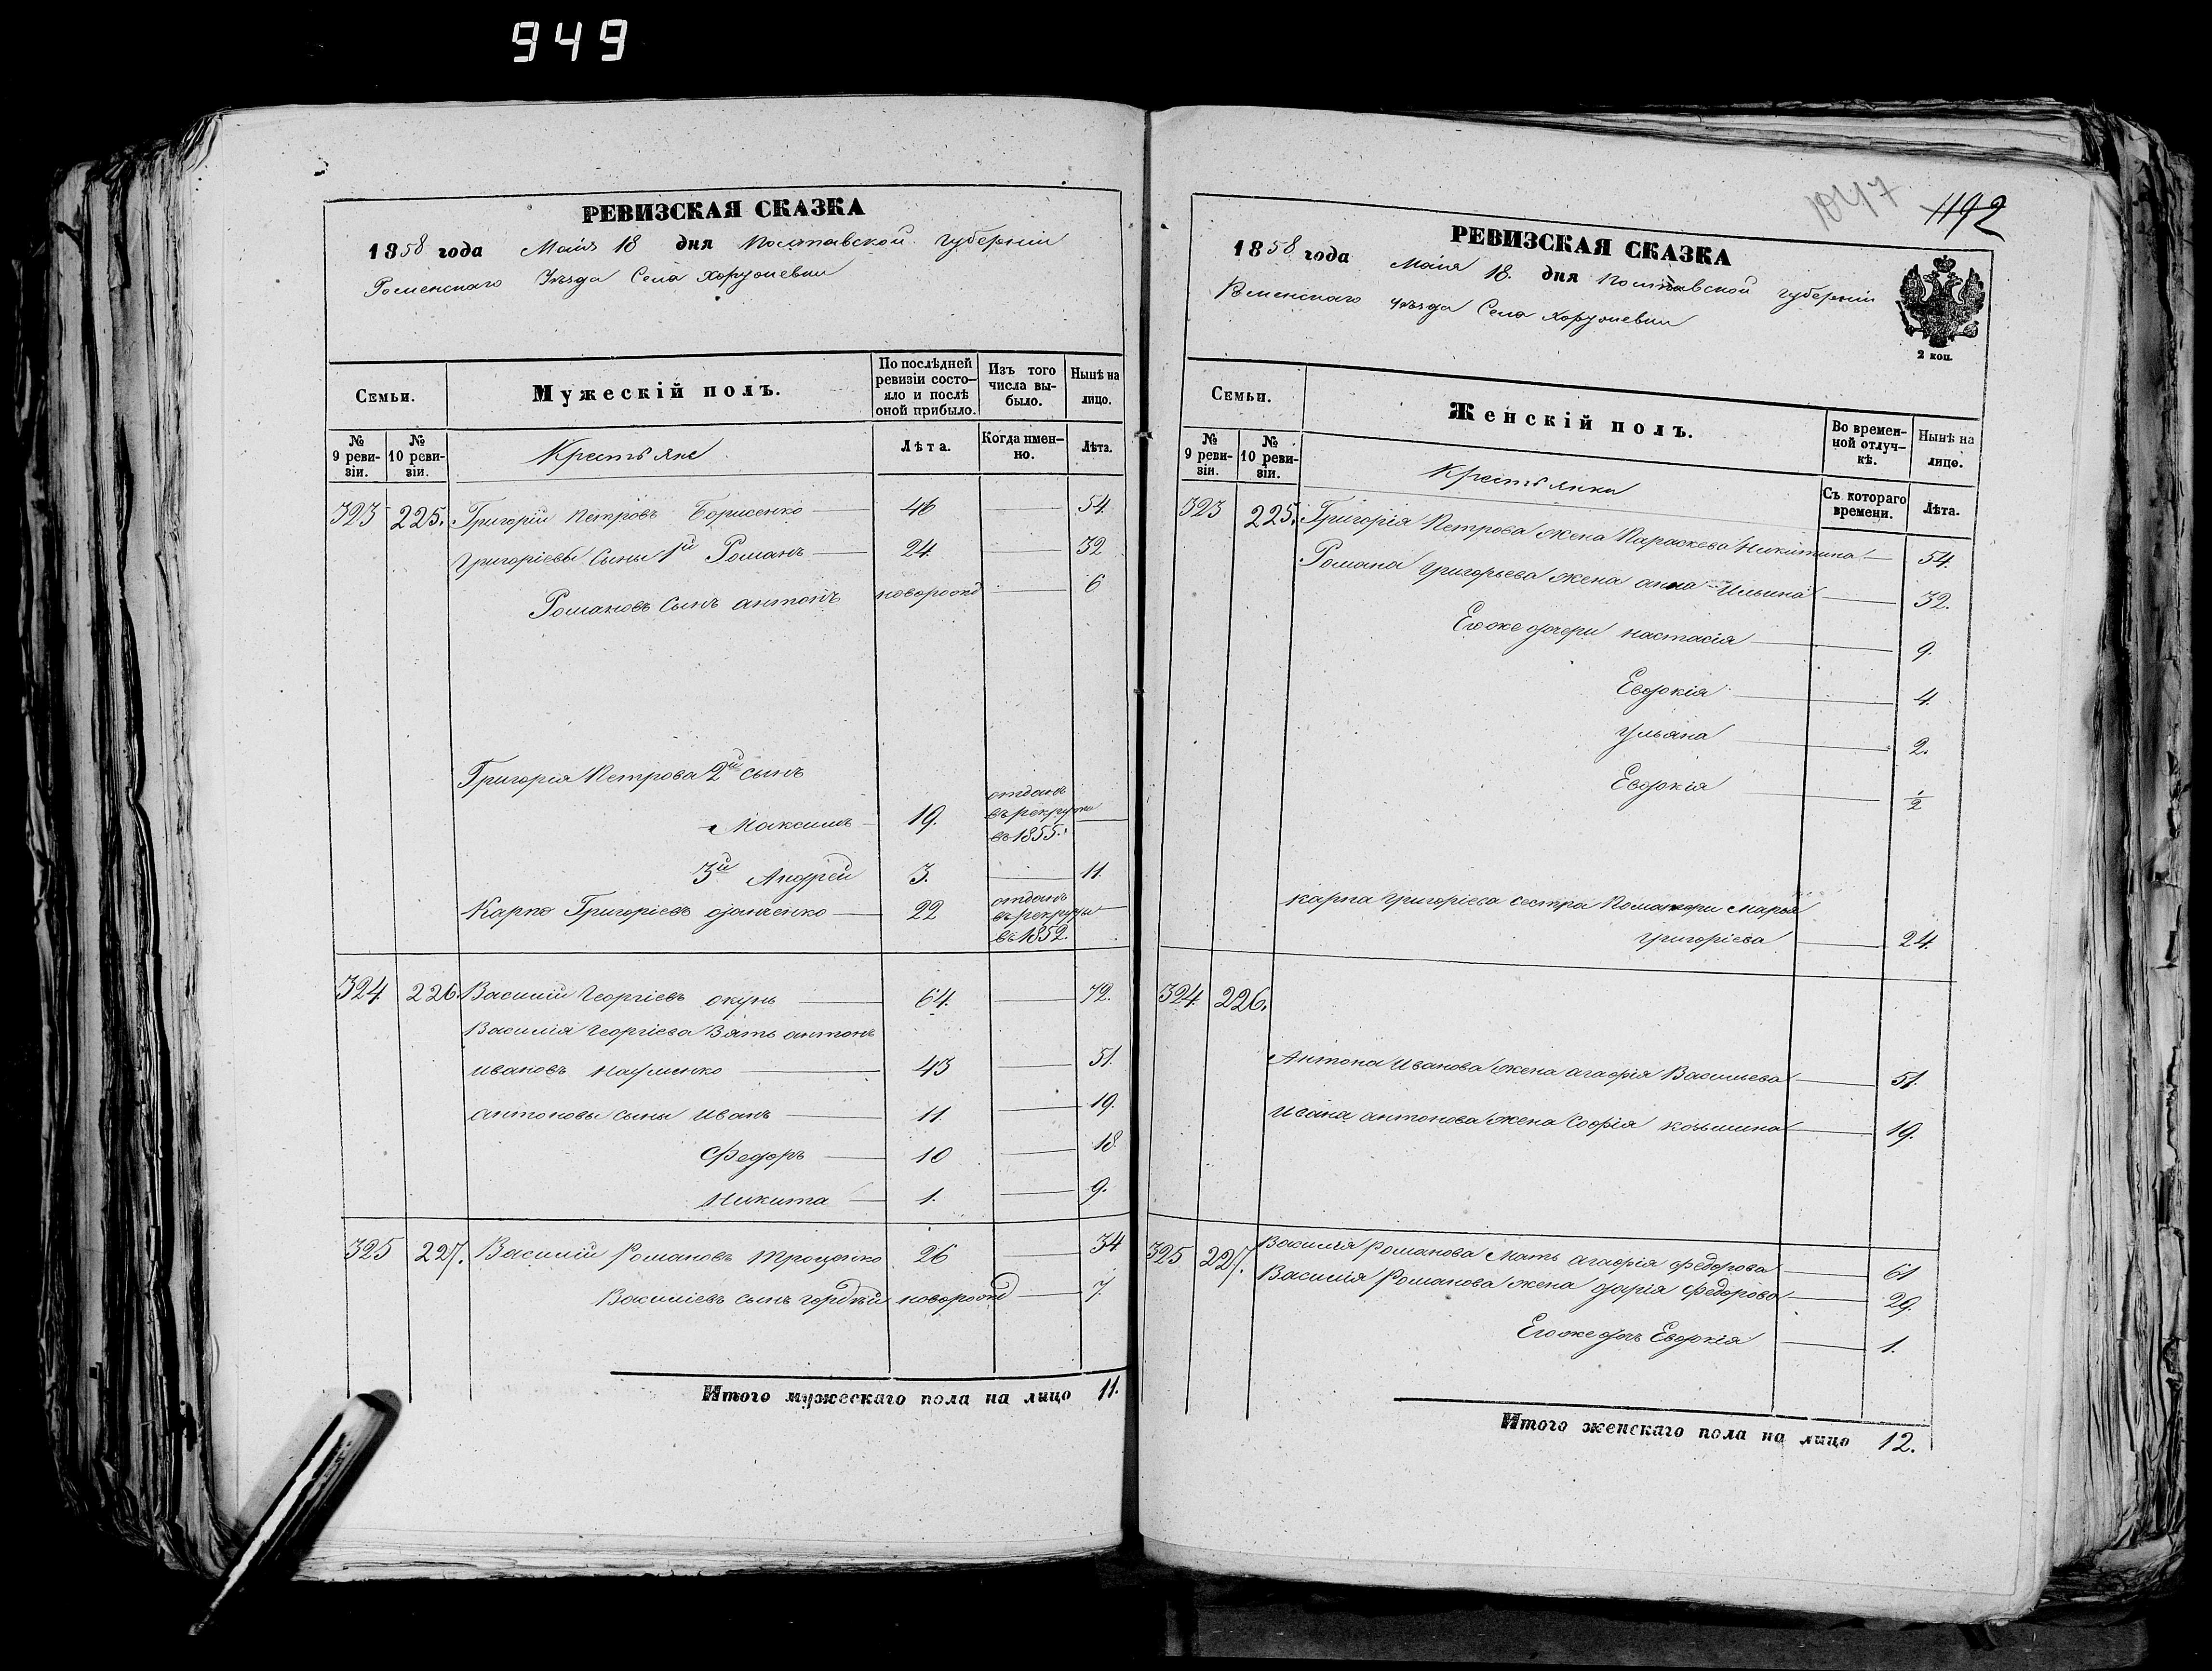 949
РЕВИЗСКАЯ СКАЗКА
1858 года Маія 18 дня Полтавской губерніи
Роменскаго Уѣзда Села Хоружевки
Семьи.
Мужескій полъ.
По послѣдней ревизіи состояло и послѣ оной прибыло.
Изъ того числа выбыло.
Нынѣ на лицо.
№ 9 ревизіи.
№ 10 ревизіи.
Крестьяне
Лѣта.
Когда именно.
Лѣта.
323 225. Григорій Петровъ Борисенко 46 54.
Григоріевы Сыны 1й Романъ 24. 32
Романовъ Сынъ антонъ новорожд 6
Григорія Петрова 2й сынъ
Максимъ 19. отданъ въ рекруты въ 1855.
3й Андрей 3. 11.
Карпо Григоріевъ 22 отданъ въ рекруты въ 1852.
324. 226 Василій Георгіевъ окунь 64. 72.
Василія Георгіева Зять антонъ
ивановъ Науменко 43 51.
антоновы сыны иванъ 11. 19.
Федоръ 10 18.
Никита 1. 9.
325 227. Василій Романовъ Троценко 26 34
Василіевъ сынъ гордѣй новорожд 7.
Итого мужескаго пола на лицо 11.
1047
1192
РЕВИЗСКАЯ СКАЗКА
1858 года Маія 18. дня Полтавской губерніи
Роменскаго уѣзда Села Хоружевки
2 коп.
Семьи.
Женскій полъ.
Во временной отлучкѣ.
Нынѣ на лицо.
№ 9 ревизіи.
№ 10 ревизіи.
Крестьянки
Съ котораго времени.
Лѣта.
323 225. Григорія Петрова жена Параскева Никитина 54.
Романа Григорьева жена анна Ильина 32.
Егоже дочери настасія 9.
Евдокія 4.
Ульяна 2.
Евдокія ½
карпа Григоріева сестра Марья
Григоріева 24.
324 226.
Антона Иванова жена агафія Васильева 51.
Ивана антонова жена Софія козьмина 19.
325 227. Василія Романова Мать агафія федорова 61
Василія Романова жена дарія Федорова 29.
Егоже дочь Евдокія 1.
Итого женскаго пола на лицо 12.